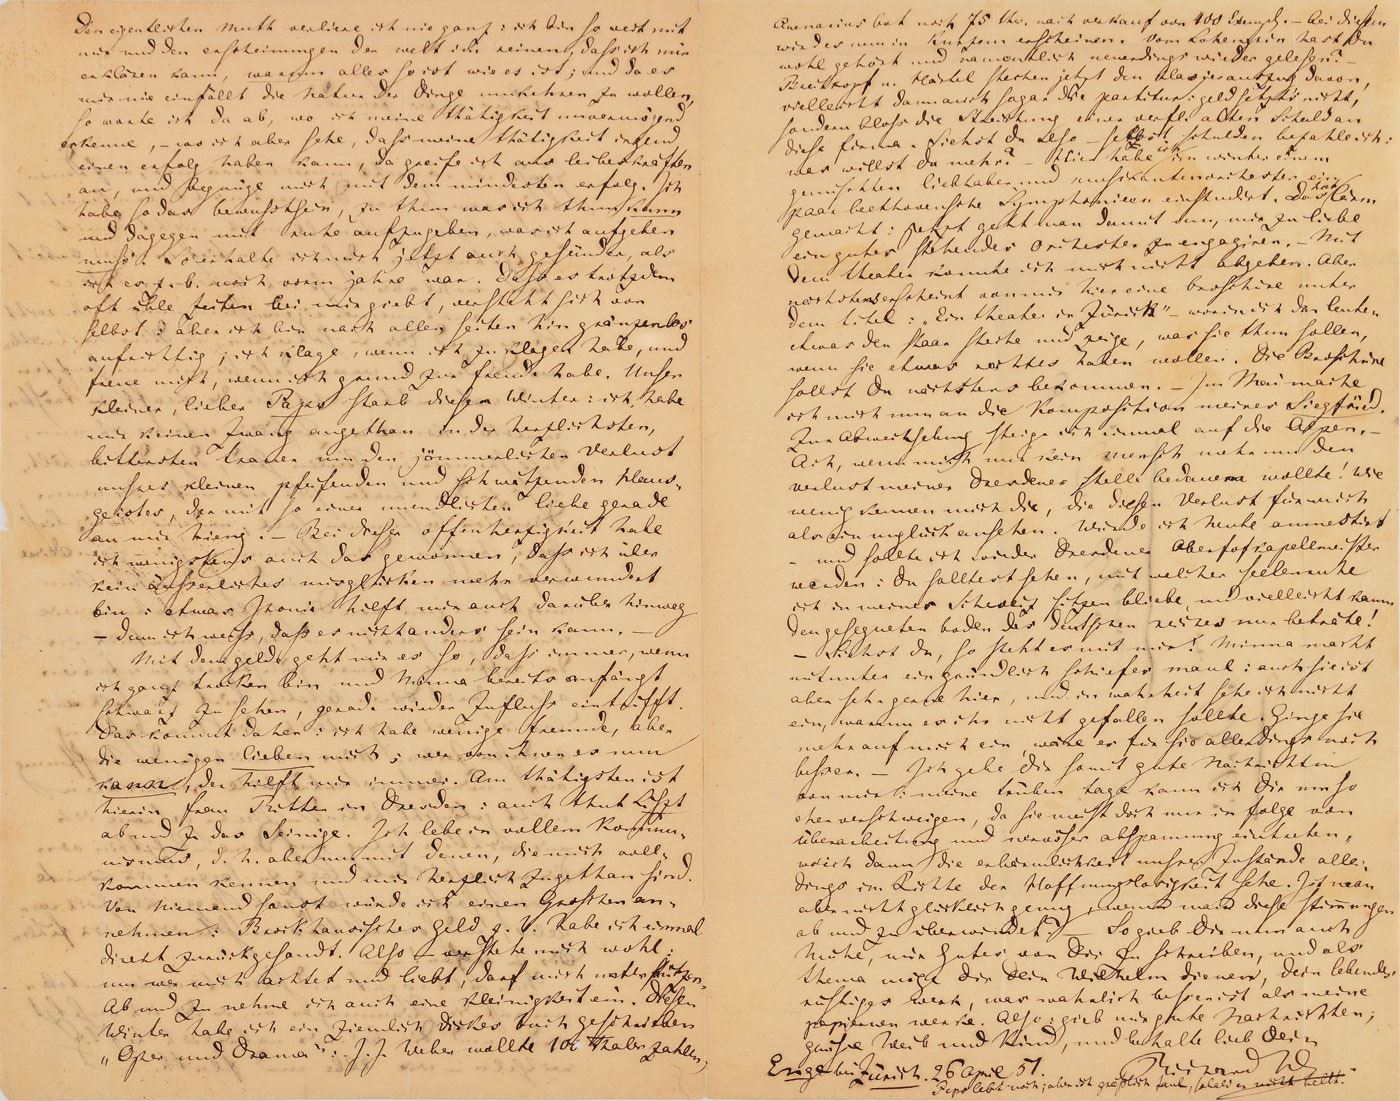 Den eigentlichen Muth verliere ich nie ganz: ich bin so weit mit
mir und den erscheinungen der welt im reinen, dass ich mir
erklären kann, warum alles so ist wie es ist; und da es
mir nie einfällt die Natur der Dinge umkehren zu wollen,
so warte ich da ab, wo ich meine thätigkeit unvermögend
erkenne, – wo ich aber sehe, dass meine thätigkeit irgend
einen erfolg haben kann, da greife ich aus leibeskräften
an, und begnüge mich mit dem mindesten erfolg. Ich
habe so das bewusstsein, zu thun was ich thun kann
und dagegen mit ruhe aufzugeben, was ich aufgeben
muss. So erhalte ich mich jetzt auch gesünder, als
ich es z. b. noch vorm jahre war. Dass es trotzdem
oft üble zeiten bei mir giebt, versteht sich von
selbst: aber ich bin nach allen seiten hin gränzenlos
aufrichtig; ich klage, wenn ich zu klagen habe, und
freue mich, wenn ich grund zur freude habe. Unser
kleiner, lieber Papo starb diesen Winter: ich habe
mir keinen Zwang angethan in der herzlichsten,
bittersten trauer um den jämmerlichen Verlust
unsres kleinen pfeifenden und schwätzenden Haus-
geistes, der mit so einer unendlichen liebe gerade
an mir hieng. – Bei dieser offenherzigkeit habe
ich wenigstens auch das gewonnen, dass ich über
kein äusserliches missglücken mehr verwundert
bin: etwas Ironie hilft mir auch darüber hinweg
– denn ich weiss, dass es nicht anders sein kann. –
Mit dem gelde geht mir es so, dass immer, wenn
ich ganz trocken bin und Minna bereits anfängt
schwarz zu sehen, gerade wieder Zufluss eintrifft.
Das kommt daher: ich habe wenige freunde, aber
die wenigen lieben mich; wer von ihnen es nun
kann, der hilft mir immer. Am thätigsten ist
hierin frau Ritter in Dresden: auch thut Liszt
ab und zu das Seinige. Ich lebe in vollem Kommu-
nismus, d. h. aber nur mit denen, die mich voll-
kommen kennen und mir herzlich zugethan sind.
Von Niemand sonst würde ich einen Groschen an-
nehmen: Brockhausisches Geld z. b. habe ich einmal
direkt zurückgesandt. Also – verstehe mich wohl:
nur wer mich achtet und liebt, darf mich unterstützen.
Ab und zu nehme ich auch eine kleinigkeit ein. Diesen
Winter habe ich ein ziemlich dickes buch geschrieben
„Oper und Drama": J. J. Weber wollte 100 thaler zahlen,
Avenarius bot noch 75 thr. nach verkauf von 400 Exempl. – bei diesem
wird es nun in Kurzem erscheinen. Vom Lohengrin hast Du
wohl gehört und namentlich neuerdings wieder gelesen? –
Breitkopf u. Härtel stechen jetzt den Klavierauszug davon,
vielleicht darnach sogar die partitur: geld setzt's nicht,
sondern bloss die Streichung einer verfluchten Schuld an
diese firma. Siehst Du also – selbst schulden bezahle ich:
was willst Du mehr? – Hier habe ich im winter einem
gemischten liebhaber und musikantenorchester ein
paar beethovensche Symphonieen einstudirt. Das hat Lärm
gemacht: jetzt geht man damit um, mir zu liebe
ein gutes stehendes Orchester zu engagiren. – Mit
dem theater konnte ich mich nicht abgeben. Aber
nächstens erscheint von mir hier eine broschüre unter
dem titel: „Ein theater in Zürich" – worin ich den leuten
etwas den staar steche und zeige, was sie thun sollen,
wenn sie etwas rechtes haben wollen. Die Broschüre
sollst Du nächstens bekommen. – Im Mai mache
ich mich nun an die Komposition meines Siegfried.
Zur Abwechselung steige ich einmal auf die Alpen. –
Ach, wenn mich nur kein mensch mehr um den
verlust meiner Dresdener stelle bedauern wollte! Wie
wenig kennen mich die, die diesen Verlust für mich
als ein unglück ansehen. Würde ich heute amnestirt
– und sollte ich wieder Dresdener Oberhofkapellmeister
werden: Du solltest sehen, mit welcher seelenruhe
ich in meiner Schweiz sitzen bliebe, und vielleicht kaum
den gesegneten boden des deutschen reiches nur beträte!
– Siehst Du, so steht es mit mir! Minna macht
mitunter ein gründlich schiefes maul: auch sie ist
aber sehr gerne hier, und in wahrheit sehe ich nicht
ein, warum es ihr nicht gefallen sollte. Ginge sie
mehr auf mich ein, wäre es für sie allerdings noch
besser. – Ich gebe Dir somit gute Nachrichten
von mir: meine trüben tage kann ich Dir um so
eher verschweigen, da sie meist doch nur in folge von
überarbeitung und nervöser abspannung eintreten,
wo ich dann die erbärmlichkeit unsrer Zustände aller-
dings im Lichte der Hoffnungslosigkeit sehe. Ist man
aber nicht glücklich genug, wenn man diese stimmungen
ab und zu überwindet? – So gieb Dir nun auch
Mühe, mir Gutes von Dir zu schreiben, und als
thema möge Dir Dein Wilhelm dienen, dein lebendes
rüstiges werk, was wahrlich besser ist als meine
papiernen werke. Also: gieb mir gute Nachrichten;
grüsse Weib und Kind, und behalte lieb Dein
Enge bei Zürich. 26 April 51. Richard W.
Peps lebt noch; aber ist grässlich faul,